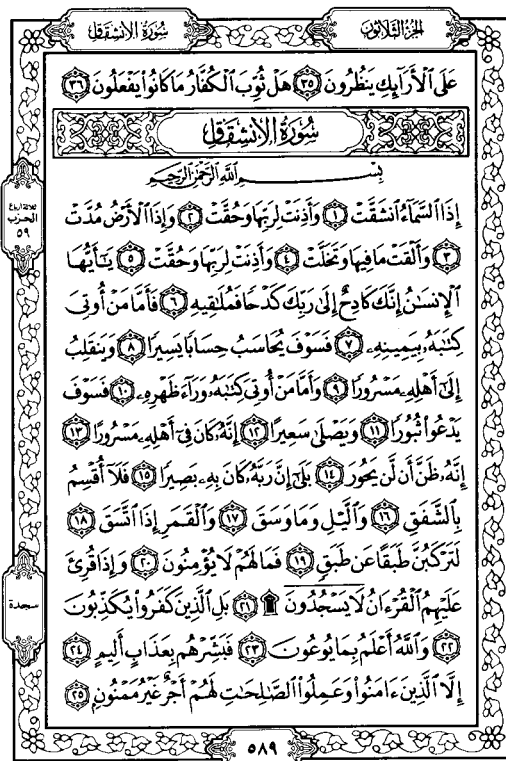 سُورَةُ الِانشِقَاقِ
الجُزءُ الثَّلَاثُونَ
عَلَى ٱلْأَرَآئِكِ يَنظُرُونَ ﴿٣٥﴾ هَلْ ثُوِّبَ ٱلْكُفَّارُ مَا كَانُوا۟ يَفْعَلُونَ ﴿٣٦﴾
سُورَةُ الِانشِقَاقِ
بِسْمِ ٱللَّهِ ٱلرَّحْمَٰنِ ٱلرَّحِيمِ
إِذَا ٱلسَّمَآءُ ٱنشَقَّتْ ﴿١﴾ وَأَذِنَتْ لِرَبِّهَا وَحُقَّتْ ﴿٢﴾ وَإِذَا ٱلْأَرْضُ مُدَّتْ
﴿٣﴾ وَأَلْقَتْ مَا فِيهَا وَتَخَلَّتْ ﴿٤﴾ وَأَذِنَتْ لِرَبِّهَا وَحُقَّتْ ﴿٥﴾ يَٰٓأَيُّهَا
ٱلْإِنسَٰنُ إِنَّكَ كَادِحٌ إِلَىٰ رَبِّكَ كَدْحًا فَمُلَٰقِيهِ ﴿٦﴾ فَأَمَّا مَنْ أُوتِىَ
كِتَٰبَهُۥ بِيَمِينِهِۦ ﴿٧﴾ فَسَوْفَ يُحَاسَبُ حِسَابًا يَسِيرًا ﴿٨﴾ وَيَنقَلِبُ
إِلَىٰٓ أَهْلِهِۦ مَسْرُورًا ﴿٩﴾ وَأَمَّا مَنْ أُوتِىَ كِتَٰبَهُۥ وَرَآءَ ظَهْرِهِۦ ﴿١٠﴾ فَسَوْفَ
يَدْعُوا۟ ثُبُورًا ﴿١١﴾ وَيَصْلَىٰ سَعِيرًا ﴿١٢﴾ إِنَّهُۥ كَانَ فِىٓ أَهْلِهِۦ مَسْرُورًا ﴿١٣﴾
إِنَّهُۥ ظَنَّ أَن لَّن يَحُورَ ﴿١٤﴾ بَلَىٰٓ إِنَّ رَبَّهُۥ كَانَ بِهِۦ بَصِيرًا ﴿١٥﴾ فَلَآ أُقْسِمُ
بِٱلشَّفَقِ ﴿١٦﴾ وَٱلَّيْلِ وَمَا وَسَقَ ﴿١٧﴾ وَٱلْقَمَرِ إِذَا ٱتَّسَقَ ﴿١٨﴾
لَتَرْكَبُنَّ طَبَقًا عَن طَبَقٍ ﴿١٩﴾ فَمَا لَهُمْ لَا يُؤْمِنُونَ ﴿٢٠﴾ وَإِذَا قُرِئَ
عَلَيْهِمُ ٱلْقُرْءَانُ لَا يَسْجُدُونَ ۩ ﴿٢١﴾ بَلِ ٱلَّذِينَ كَفَرُوا۟ يُكَذِّبُونَ
﴿٢٢﴾ وَٱللَّهُ أَعْلَمُ بِمَا يُوعُونَ ﴿٢٣﴾ فَبَشِّرْهُم بِعَذَابٍ أَلِيمٍ ﴿٢٤﴾
إِلَّا ٱلَّذِينَ ءَامَنُوا۟ وَعَمِلُوا۟ ٱلصَّٰلِحَٰتِ لَهُمْ أَجْرٌ غَيْرُ مَمْنُونٍۭ ﴿٢٥﴾
ثلاثة أرباع
الحزب
٥٩
سجدة
٥٨٩